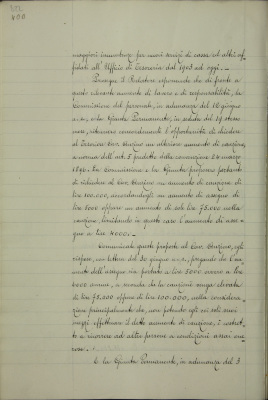 400
maggiori incombenze pei nuovi servizi di cassa ed altri af-
fidati all'Ufficio di Tesoreria dal 1903 ad oggi. –
Prosegue il Relatore esponendo che di fronte a
questo rilevante aumento di lavoro e di responsabilità, la
Commissione del personale, in adunanza del 16 giugno
a. s. e la Giunta Permanente, in seduta del 19 stesso
mese, ritennero concordemente l'opportunità di chiedere
al Tesoriere Cav. un ulteriore aumento di cauzione,
a norma dell'art. 5 predetto della convenzione 24 marzo
1896. La Commissione e la Giunta pertanto
di richiedere al Cav. un aumento di cauzione di
lire 100.000, accordandogli un aumento di assegno di
lire 5000 oppure un aumento di sole lire 75.000 nella
cauzione, limitando in questo caso l'aumento di asse-
gno a lire 4000. –
Comunicate queste proposte al Cav. egli
rispose, con lettera del 30 giugno a. s., pregando che l'au-
mento dell'assegno sia portato a lire 5000 ovvero a lire
4000 annue, a seconda che la cauzione venga elevata
di lire 75.000 oppure di lire 100.000, nella considera-
zione principalmente che, non potendo egli coi soli suoi
mezzi effettuare il detto aumento di cauzione, è costret-
to a ricorrere ad altre persone a condizioni assai one-
rose. –
E la Giunta Permanente, in adunanza del 3